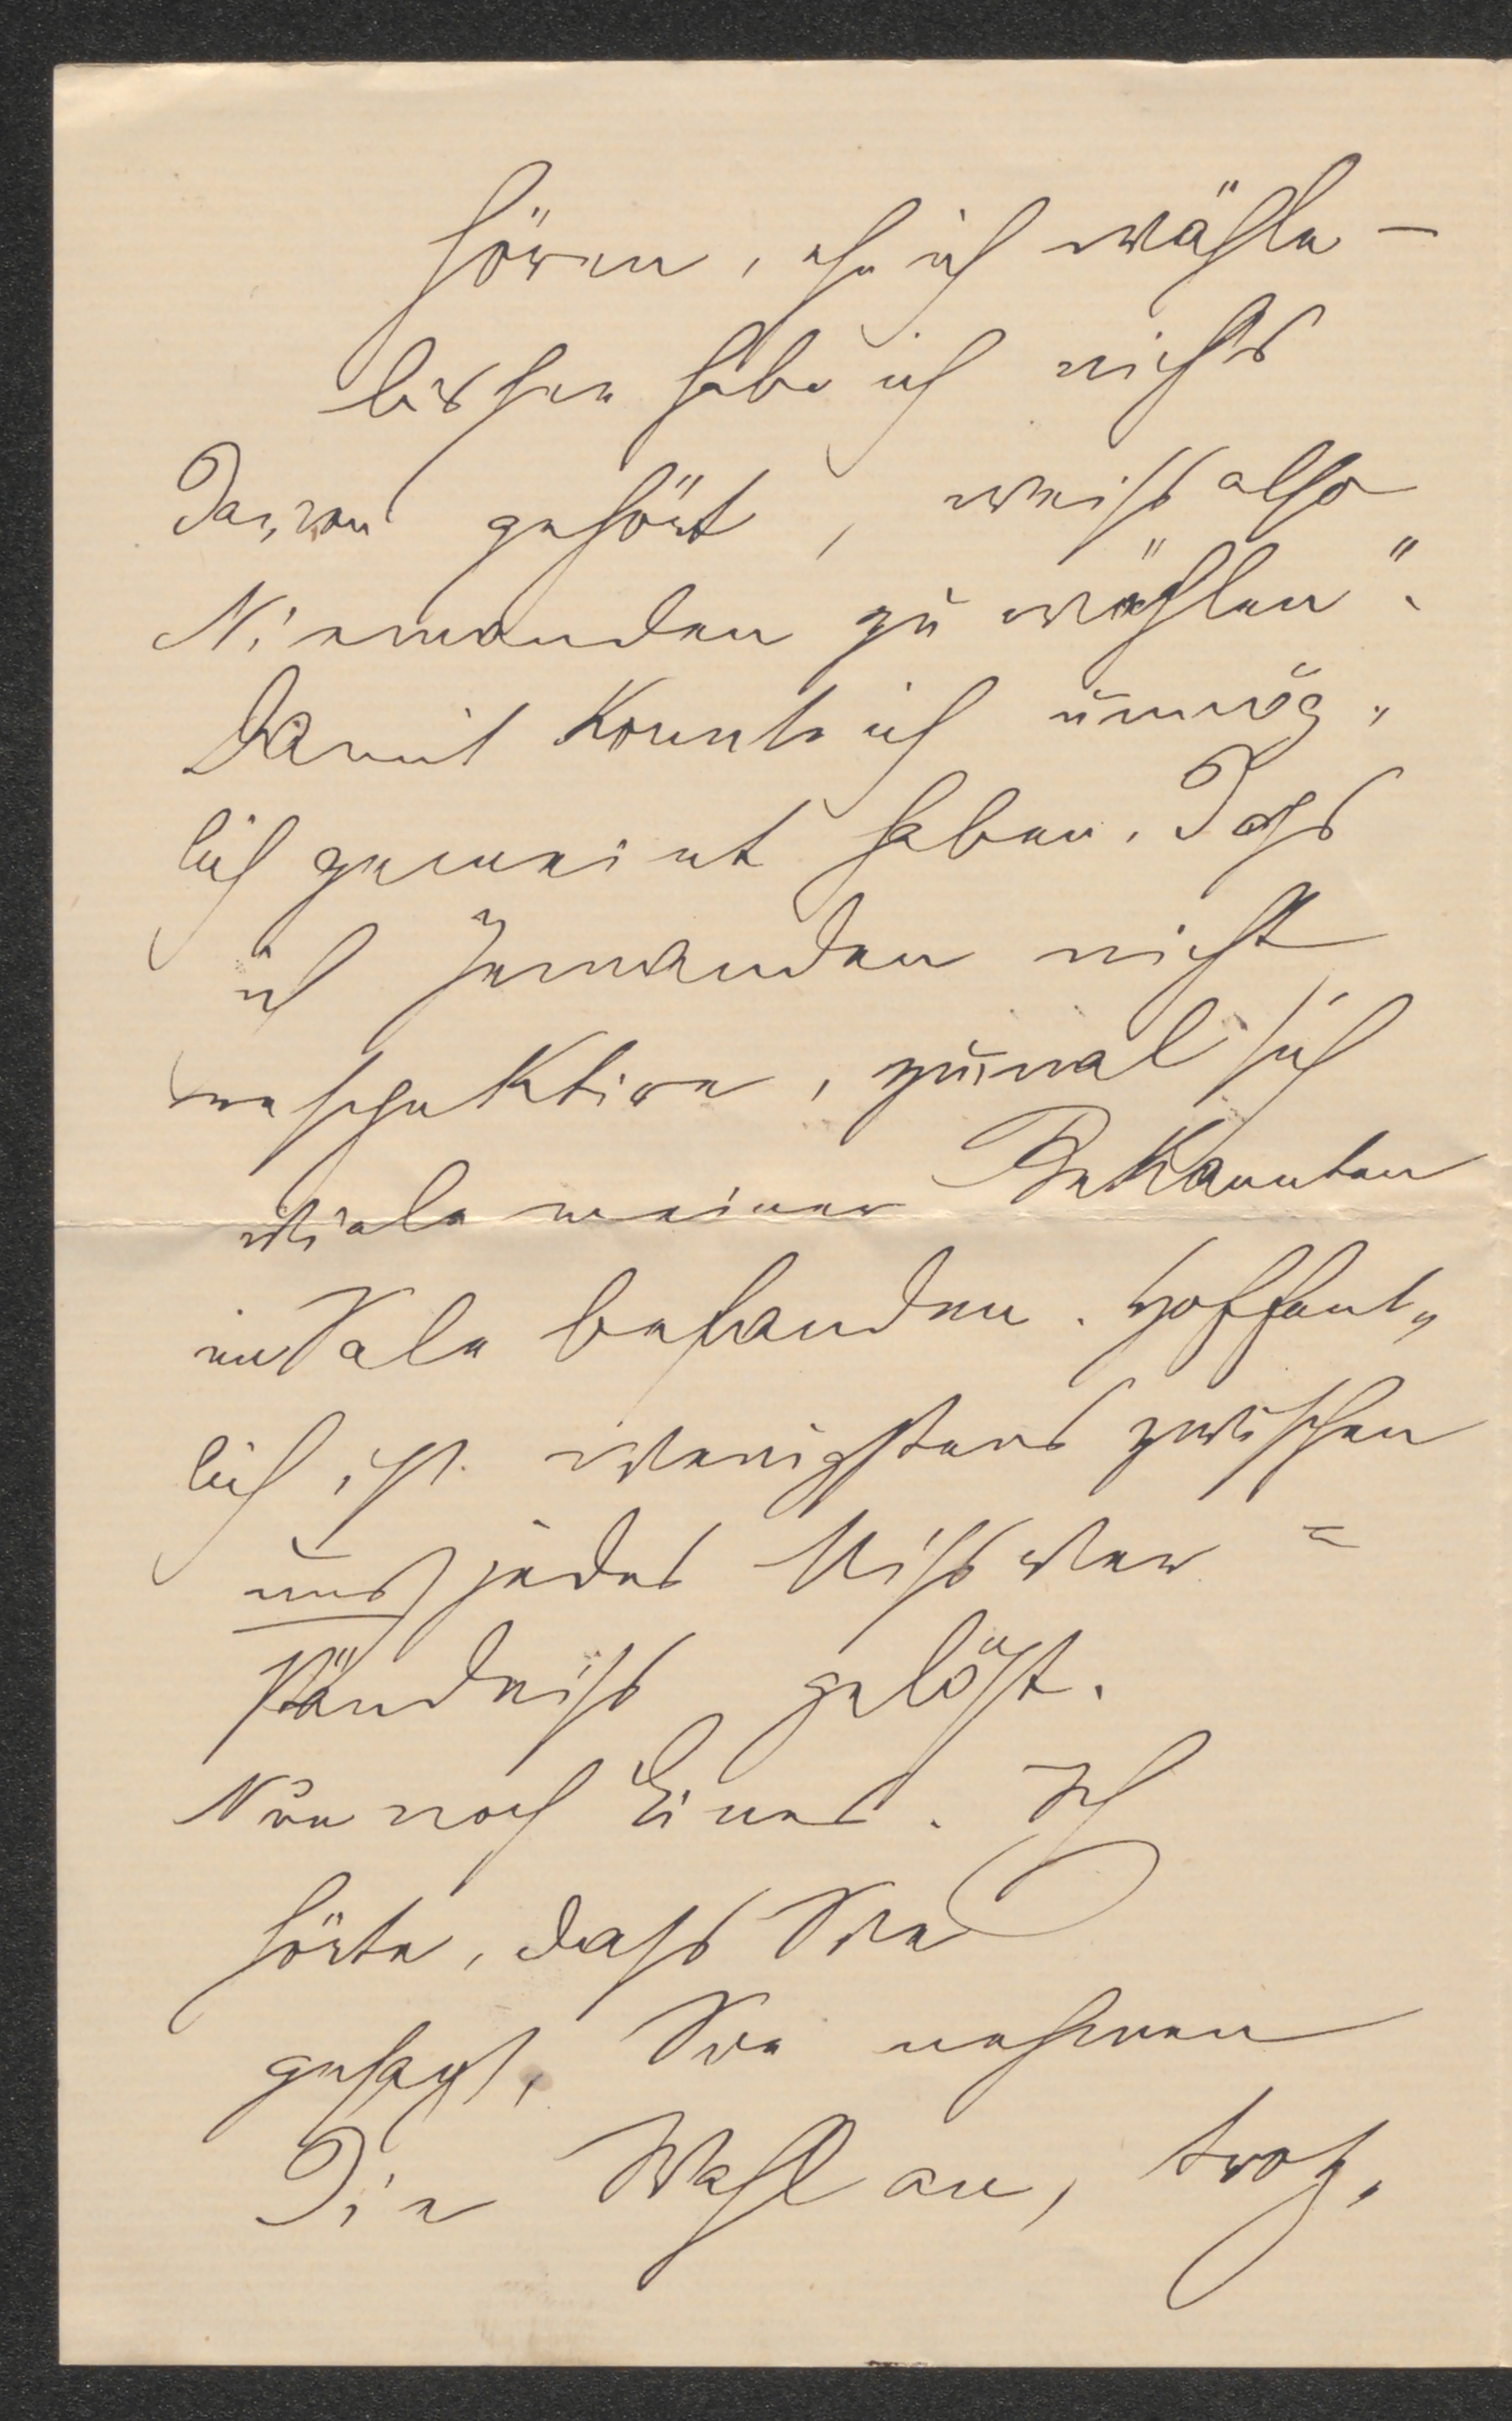 hören, ehe ich wähle –
bisher habe ich nichts
davon gehört, weiß also
Niemanden zu wählen".
Damit konnte ich unmög„
lich gemeint haben, daß
ich Jemanden nicht
respektire, zumal sich
viele meiner Bekannten
im Sale befanden. Hoffent„
lich ist wenigstens zwischen
uns jedes Mißver=
ständniß gelöst.
Nur noch Eines. Ich
hörte, daß Sie
gesagt, Sie nehmen
die Wahl an, trotz„